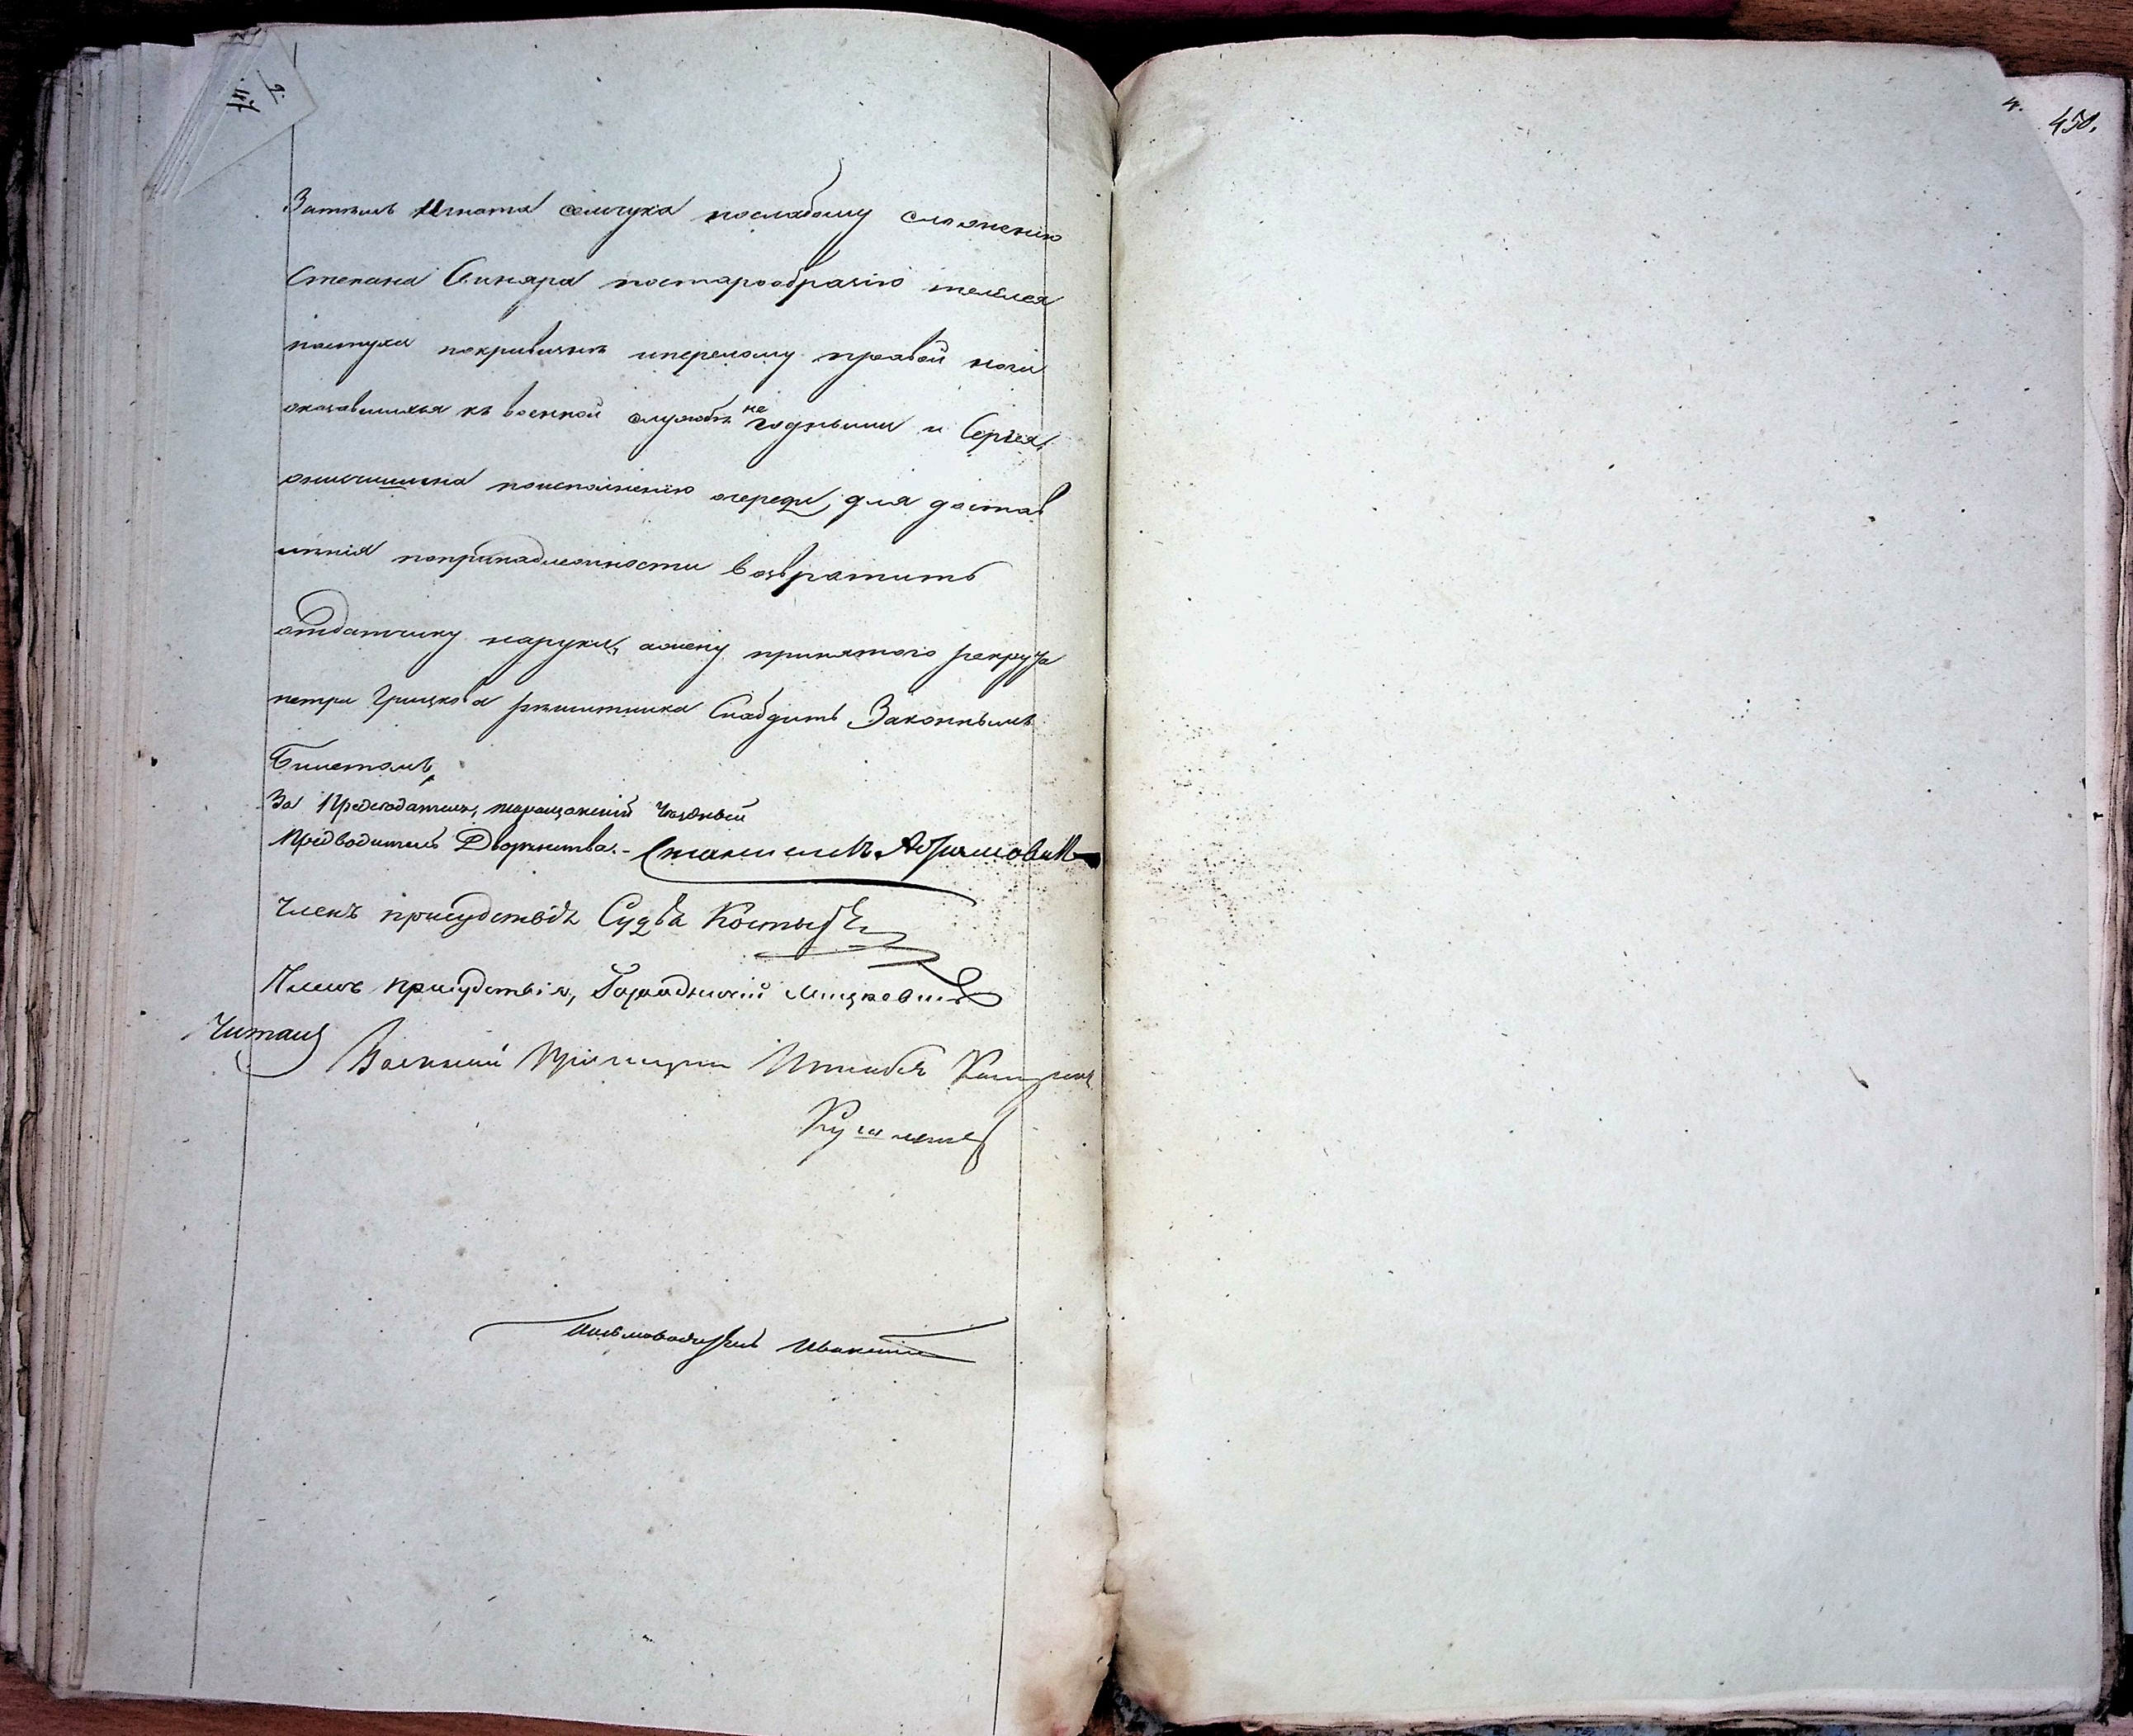 Затемъ Игната семчука послабому сложению
Степана Бондаря постарообразію
пастуха покривизне иперелому правой ноги
оказавшихся къ военной службе негодными и Сергея
поисполнению очереди, для достав
ленія попринадлежности возвратить
отдатчику наруки, а жену принятого рекрута
петра Грицкова Снабдить Законнымъ
Билетомъ,
За Председателя, таращанский Уездный
Предводитель Дворянства.- Станиславъ Абрамовичъ
Членъ присудствія Судья
Членъ присудствія, Городничий Мицкевичъ
Читалъ Военный Приемщикъ Штабсъ Капитанъ
Письмоводитель
450.
47